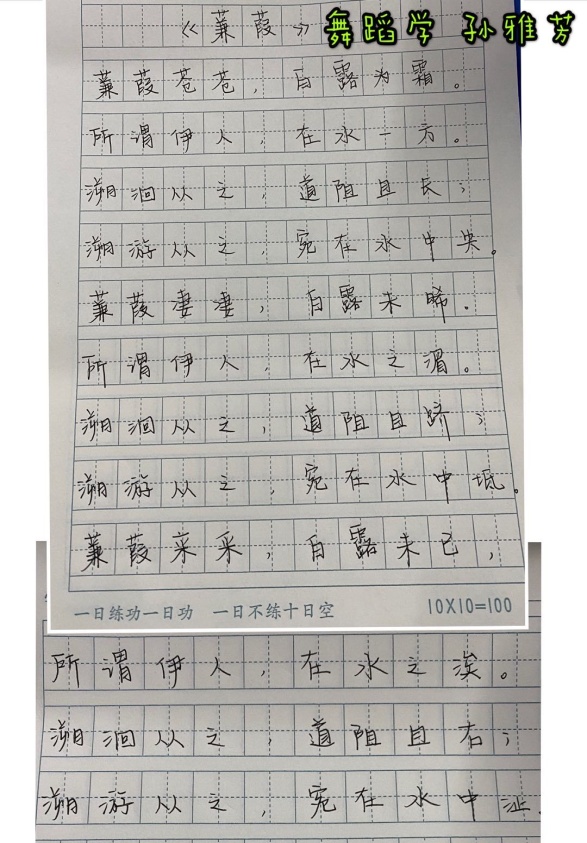 《蒹葭》 舞蹈学 孙雅芳
蒹葭苍苍，白露为霜。
所谓伊人，在水一方。
溯洄从之，道阻且长；
溯游从之，宛在水中央。
蒹葭萋萋，白露未晞。
所谓伊人，在水之湄。
溯洄从之，道阻且跻；
溯游从之，宛在水中坻。
蒹葭采采，白露未已，
一日练功一日功 一日不练十日空 10X10=100
所谓伊人，在水之涘。
溯洄从之，道阻且右；
溯游从之，宛在水中沚.